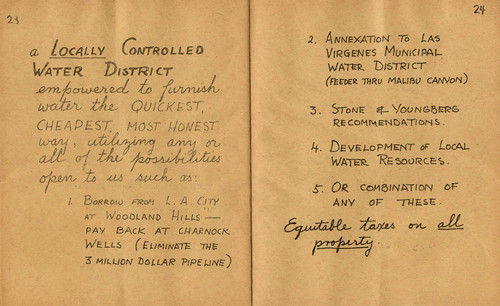 23
a LOCALLY CONTROLLED
WATER DISTRICT
empowered to furnish
water the QUICKEST,
CHEAPEST, MOST HONEST
way, utilizing any or
all of the possibilities
open to us such as:
1. BORROW FROM L.A. CITY
AT WOODLAND HILLS —
PAY BACK AT CHARNOCK
WELLS (ELIMINATE THE
3 MILLION DOLLAR PIPELINE)
24
2. ANNEXATION TO LAS
VIRGENES MUNICIPAL
WATER DISTRICT
(FEEDER THRU MALIBU CANYON)
3. STONE & YOUNGBERG
RECOMMENDATIONS.
4. DEVELOPMENT OF LOCAL
WATER RESOURCES.
5. OR COMBINATION OF
ANY OF THESE.
Equitable taxes on all
property.